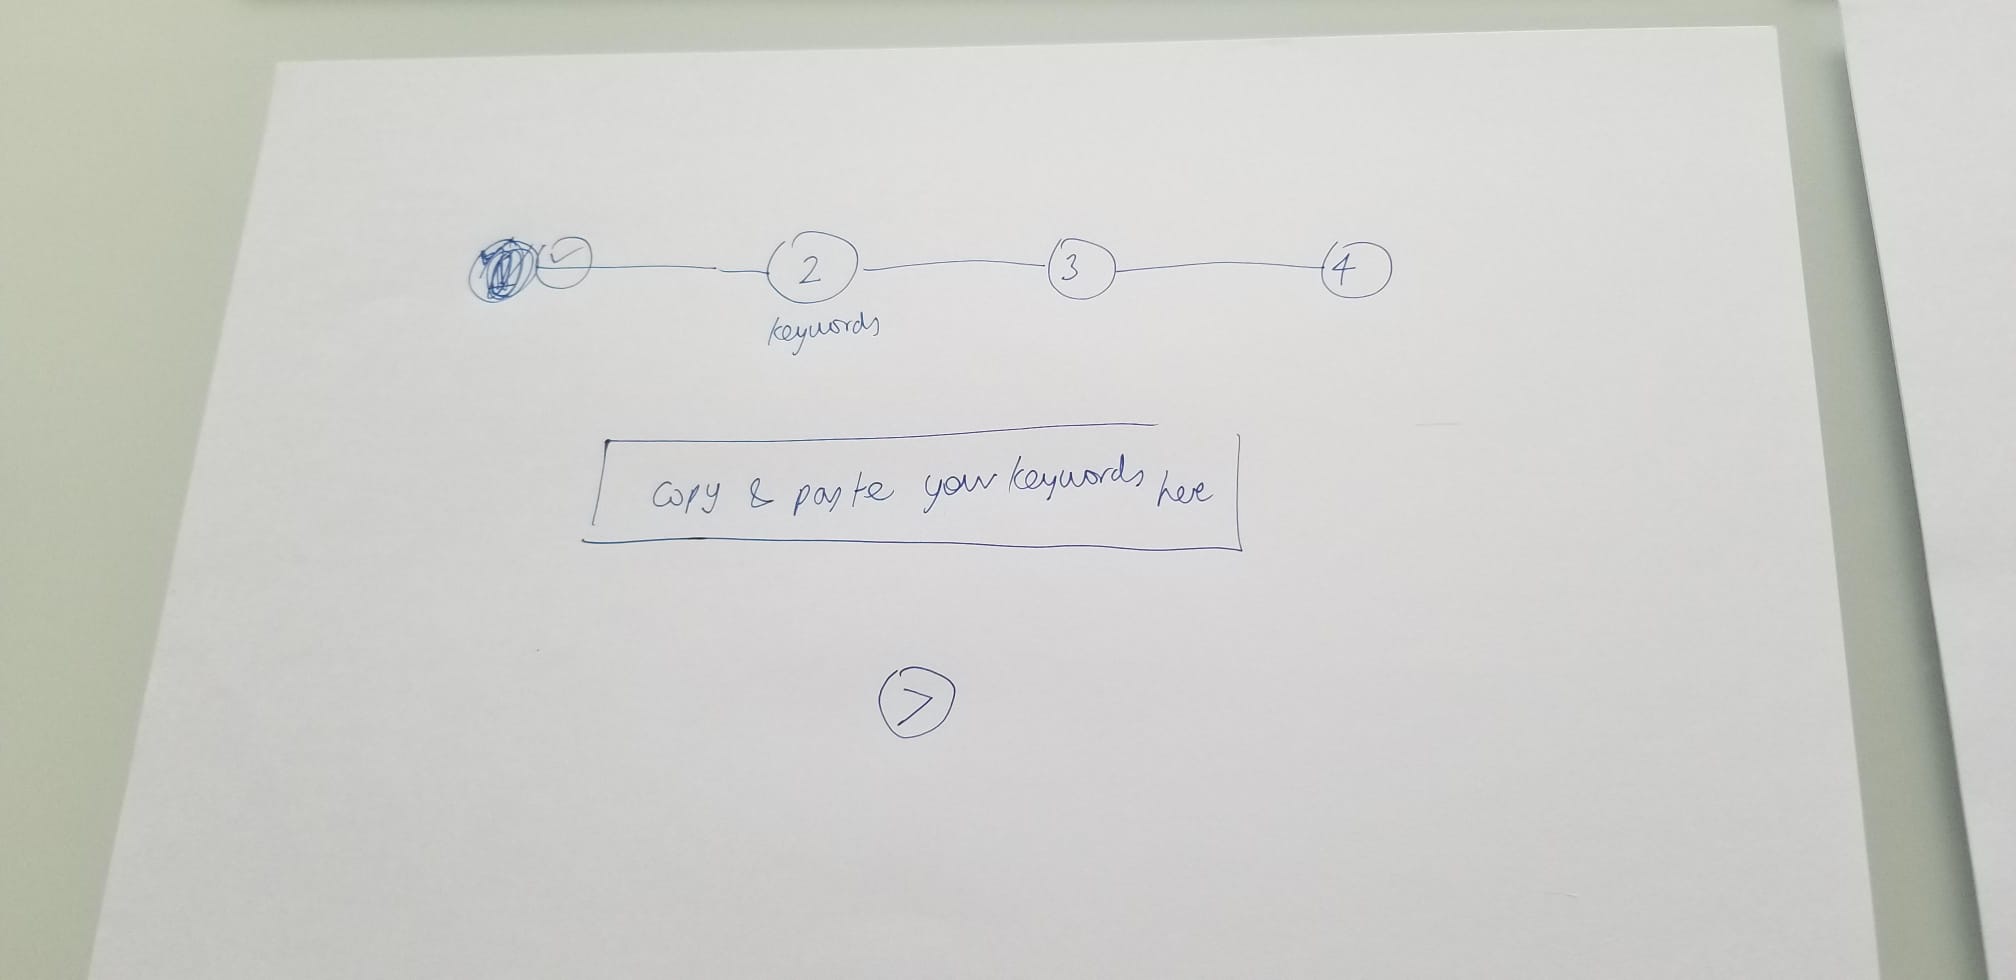 2 3 4
keywords
copy & paste your keywords here
>